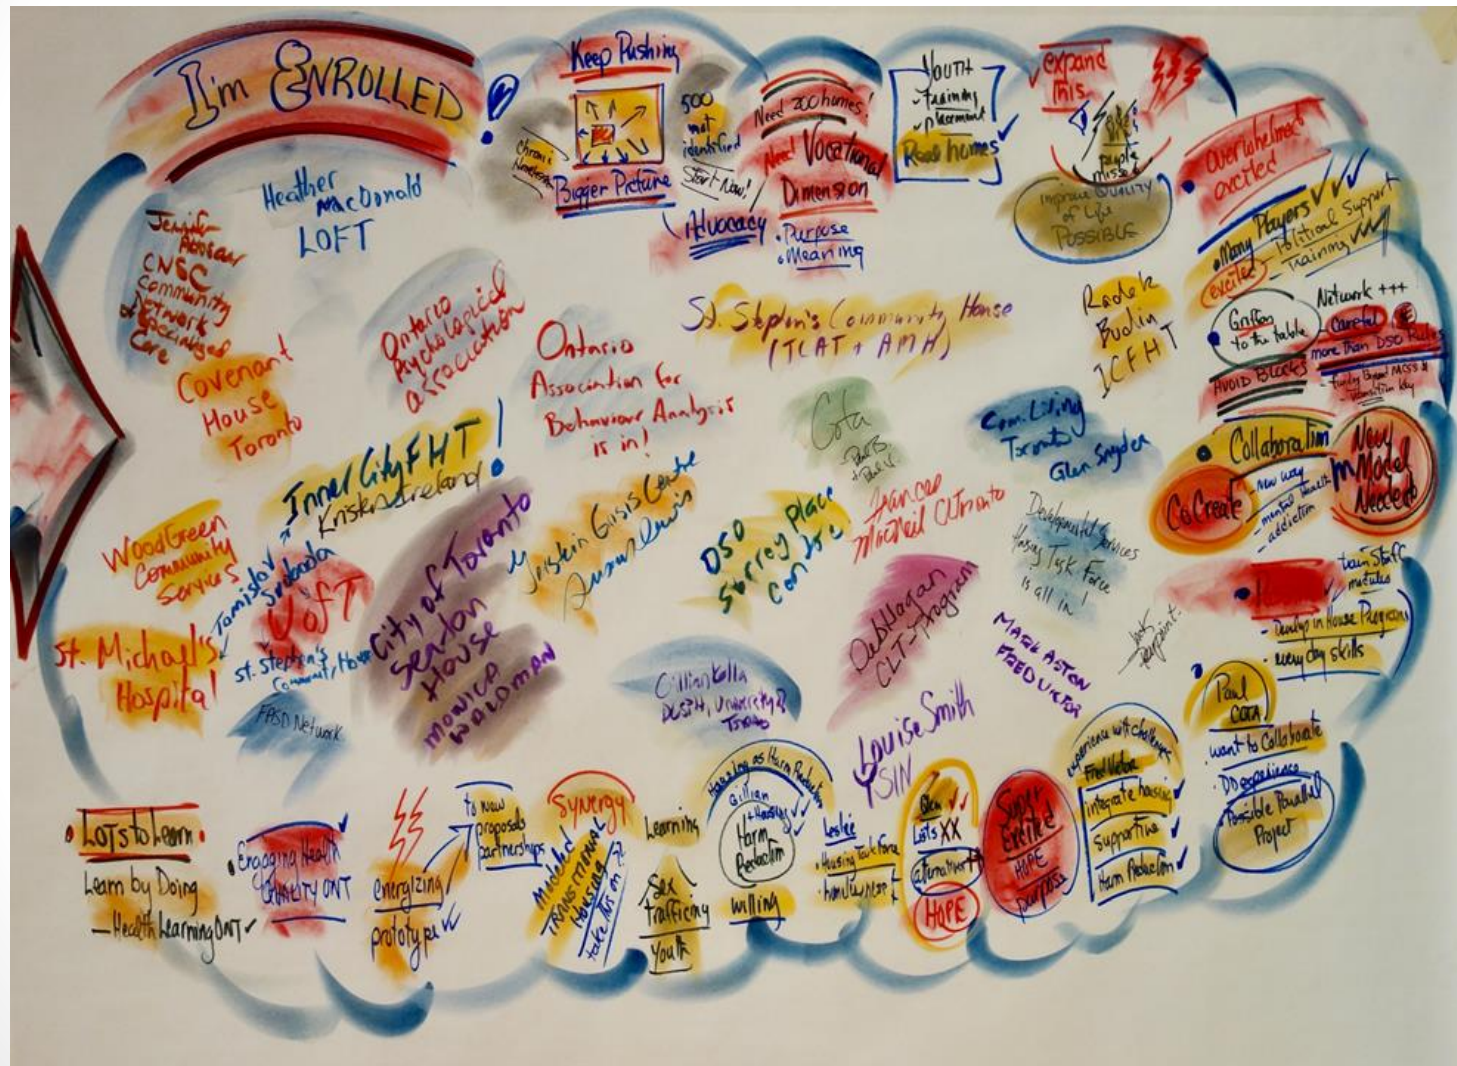 I'm ENROLLED
!
Keep Pushing
Bigger Picture
Chronic
500
not
identified
Start Now!
Advocacy
Need 200 homes!
Need Vocational
Dimension
• Purpose
• Meaning
YOUTH
Training
placement
Real homes
expand
this
people
missed
Improve QUALITY
of Life
POSSIBLE
Overwhelmed
excited
• Many Players
excited
- Political Support
- Training
Network +++
Griffon
to the table
Careful
more than DSO Rules
AVOID Blocks
Heather
MacDonald
LOFT
Jennifer
CNSC
Community
Network
of Specialized
Care
Covenant
House
Toronto
Ontario
Psychological
association
Ontario
Association for
Behaviour Analysis
is in!
St. Stephen's Community House
(TCAT + AMH)
Radek
Budin
ICFHT
Cota
- Paul B.
Com. Living
Toronto
Glen Snyder
Collaboration
CoCreate
- new way
- mental health
- addiction
New
Model
Needed
Inner City FHT!
Kristen Ireland
WoodGreen
Community
Services
Tomislav
Svoboda
UofT
St. Stephen's
Community House
St. Michael's
Hospital
FASD Network
City of Toronto
Seaton
House
MONICA
WALDMAN
Gerstein Crisis Centre
Susan Davis
DSO
Surrey Place
Centre
Frances
MacNeil CLToronto
Developmental Services
Housing Task Force
is all in!
Deb Hagan
CLT-
MARK ASTON
FRED VICTOR
Jack
Pearpoint.
Gillian Kolla
DLSPH, University of
Toronto
Louise Smith
YSIN
train staff
modules
- Develop in House Programs
- everyday skills
Paul
COTA
• want to Collaborate
• DD experience
• Possible Parallel
Project
• LOTS to Learn •
Learn by Doing
— Health Learning ONT
• Engaging Health
QUALITY ONT
energizing
prototype
to new
proposals
partnerships
Synergy
Modeled
TRANSITIONAL
HOUSING
take this on
Learning
Sex
Trafficing
Youth
Housing as Harm Reduction
Gillian
+ Housing
Harm
Reduction
willing
Leslie
• Housing Task Force
Glen
Lists XX
alternatives
HOPE
Super
Excited
HOPE
purpose
experience with challenges
Fred Victor
integrate housing
Supportive
Harm Reduction